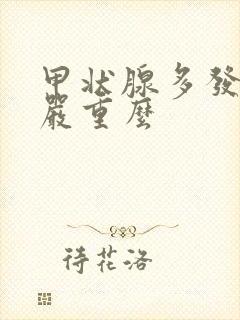 甲状腺多發
嚴重麼
待花洛